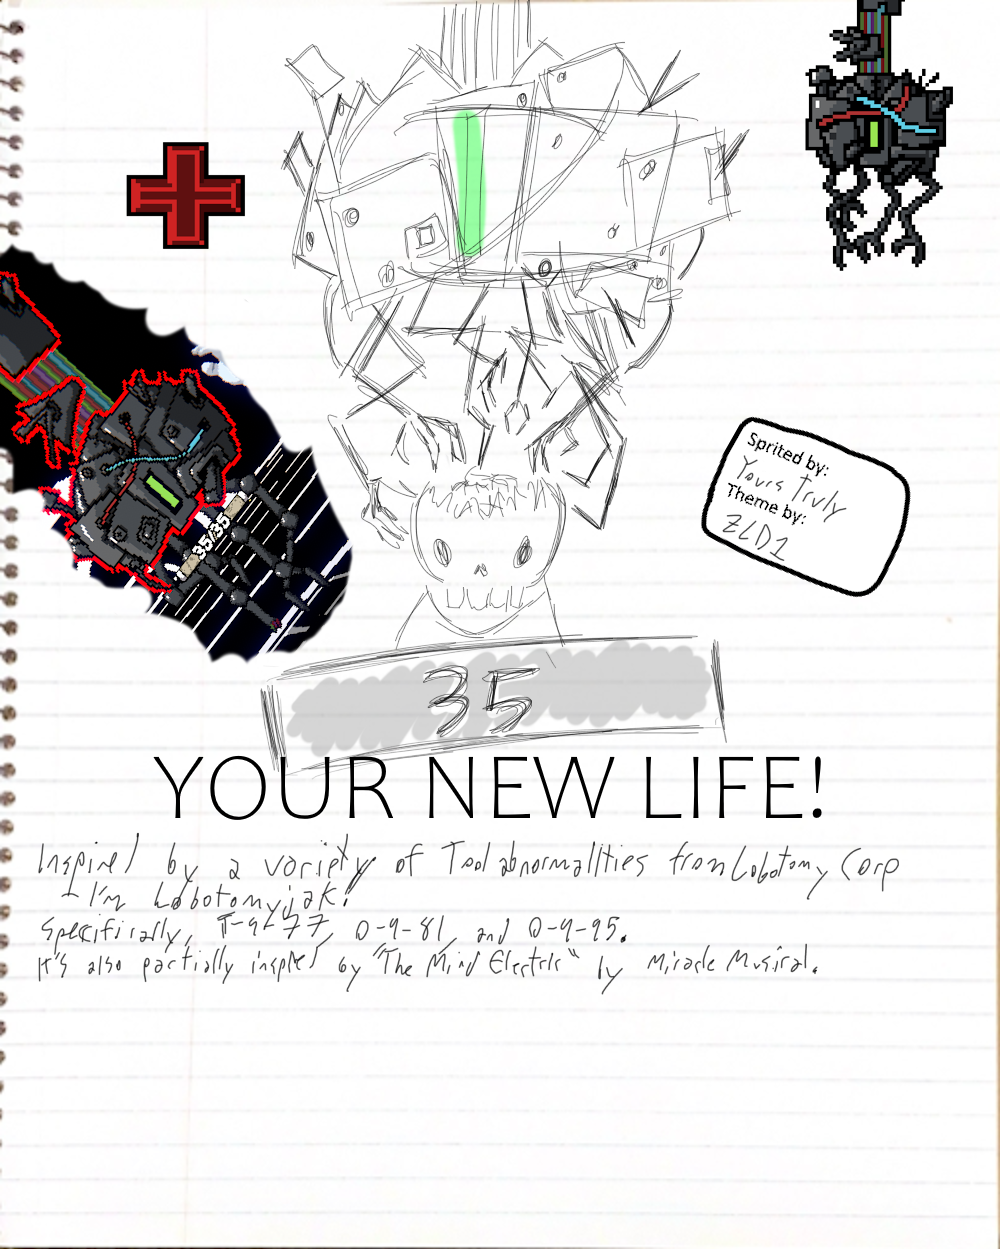 35/35
Sprited by:
Yours Truly
Theme by:
ZLD1
35
YOUR NEW LIFE!
Inspired by a variety of Tool abnormalities from Lobotomy Corp
- I'm Lobotomyjak!
Specifically, T-9-77, O-9-81, and O-9-95.
It's also partially inspired by "The Mind Electric" by Miracle Musical.